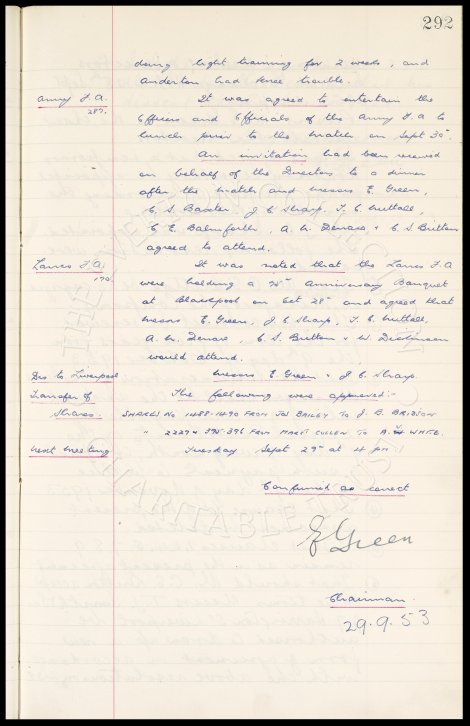 292
doing light training for 2 weeks, and
Anderton had knee trouble.
Army F.A.
287.
It was agreed to entertain the
Officers and Officials of the Army F.A to
lunch prior to the match on Sept 30th
An invitation had been received
on behalf of the Directors to a dinner
after the match and messrs E. Green,
C. S. Baxter, J. C. Sharp, T. C. Nuttall,
C. E. Balmforth, A. W. Denaro & C. S. Britten
agreed to attend.
Lancs F.A.
It was noted that the Lancs F.A
were holding a 75th Anniversary Banquet
at Blackpool on Oct 28th and agreed that
messrs E. Green, J. C. Sharp, T. C. Nuttall,
A. W. Denaro, C. S. Britten & W. Dickinson
would attend.
Dirs to Liverpool
messrs E. Green & J. C. Sharp.
Transfer of
Shares.
The following were approved:-
SHARES No 1488-1490 FROM JOS BAILEY TO J. B. BRIDSON
" 2227 & 395-396 FROM MARK CULLEN TO A. H WHITE.
Next meeting
Tuesday Sept 29th at 4 pm.
Confirmed as correct
E Green
Chairman.
29.9.53
THE EVERTON COLLECTION
CHARITABLE TRUST